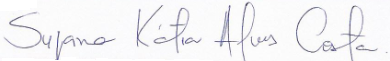 Suzana Kátia Alves Costa.